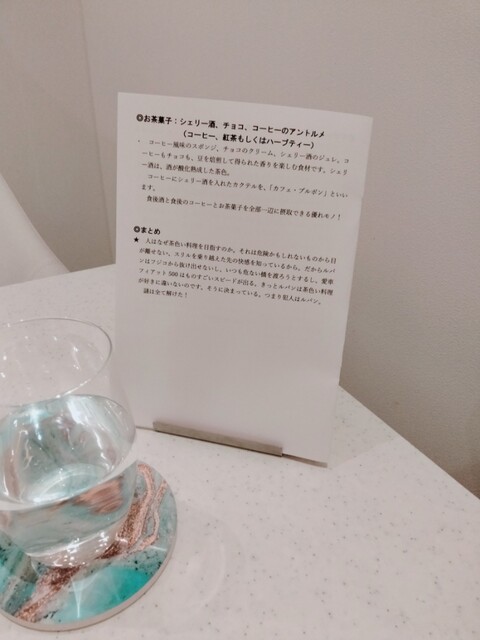 ◎お茶菓子：シェリー酒、チョコ、コーヒーのアントルメ
（コーヒー、紅茶もしくはハーブティー）
・ コーヒー風味のスポンジ、チョコのクリーム、シェリー酒のジュレ、コ
ーヒーもチョコも、豆を焙煎して得られた香りを楽しむ食材です。シェリ
ー酒は、酒が酸化熟成した茶色。
コーヒーにシェリー酒を入れたカクテルを、「カフェ・ブルボン」といい
ます。
食後酒と食後のコーヒーとお茶菓子を全部一辺に摂取できる優れモノ！
◎まとめ
★ 人はなぜ茶色い料理を目指すのか。それは危険かもしれないものから目
が離せない。スリルを乗り越えた先の快感を知っているから。だからルパ
ンはフジコから抜け出せないし、いつも危ない橋を渡ろうとするし、愛車
フィアット500はものすごいスピードが出る。きっとルパンは茶色い料理
が好きに違いないのです。そうに決まっている。つまり犯人はルパン。
謎は全て解けた！